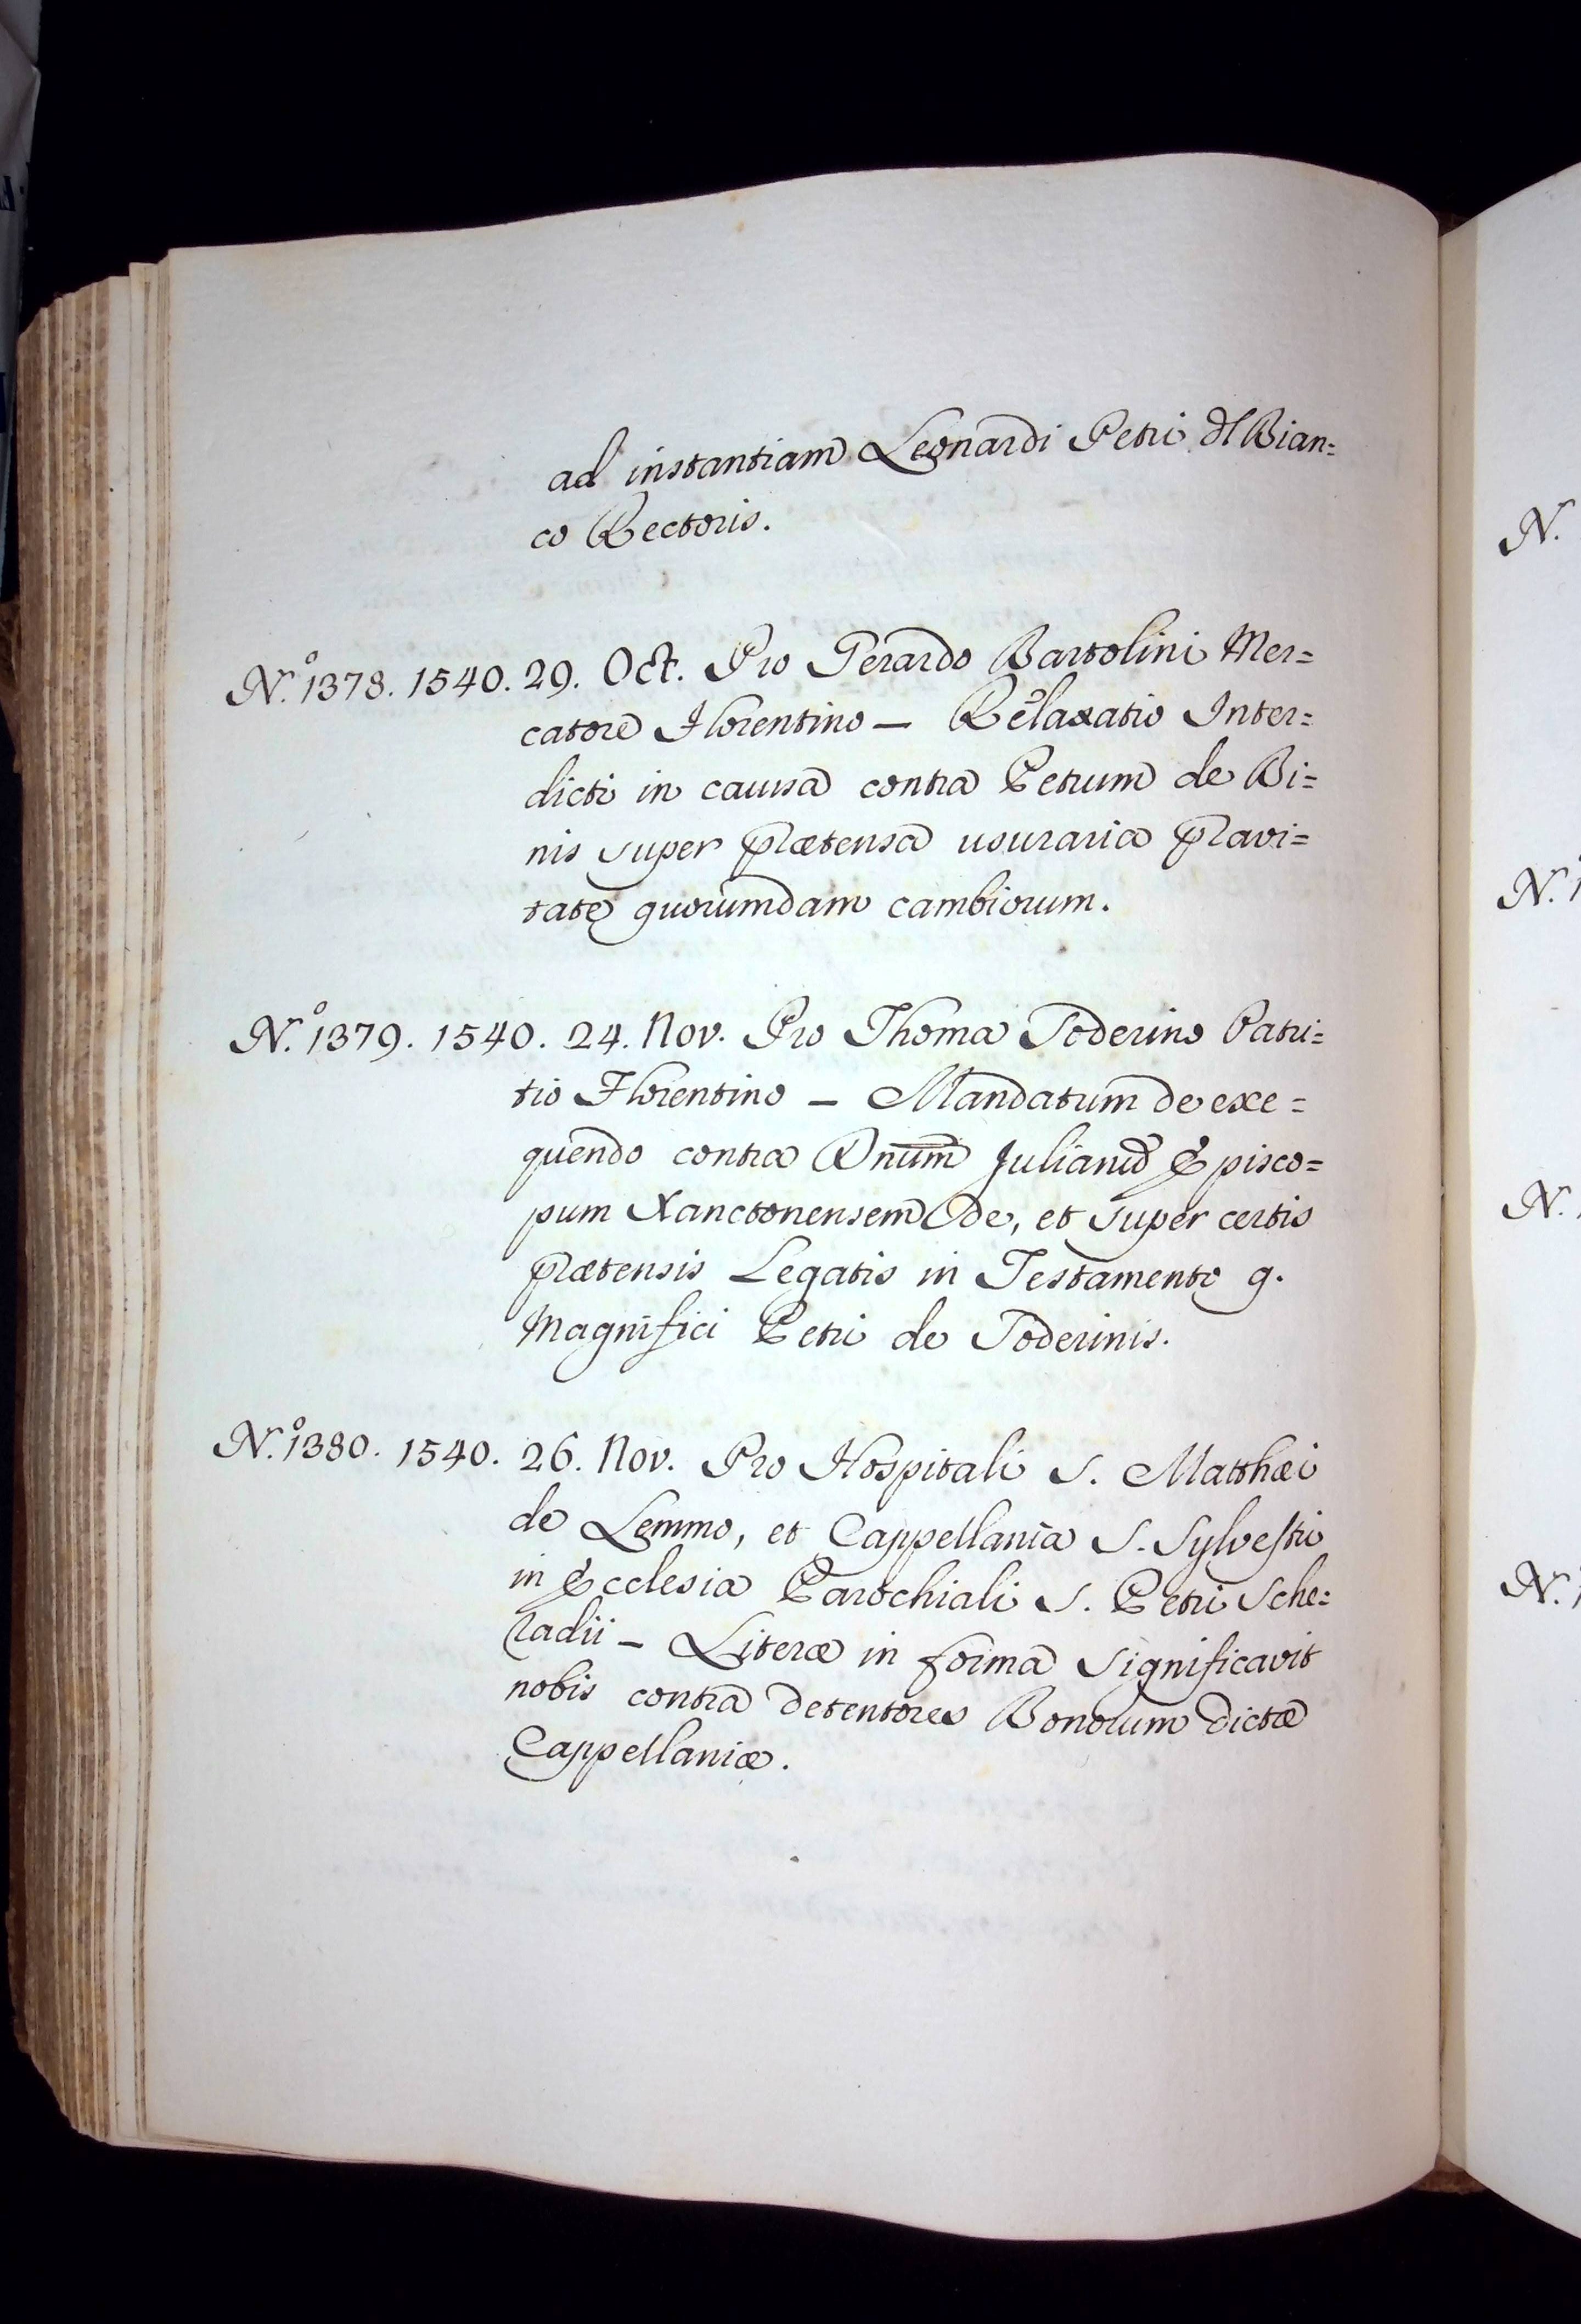 ad instantiam Leonardi Petri dl Bian=
co Rectoris.
N.º 1378. 1540. 29. Oct. Pro Gerardo Bartolini Mer=
catore Florentino — Relaxatio Inter=
dicti in causa contra Petrum de Bi=
nis super prætensa usuraria pravi=
tate quorumdam cambiorum.
N.º 1379. 1540. 24. Nov. Pro Thoma Toderino Patri=
tio Florentino — Mandatum de exe=
quendo contra Dnum Julianū Episco=
pum Xanctonensem De, et super certis
prætensis Legatis in Testamento q.
Magnifici Petri de Toderinis.
N.º 1380. 1540. 26. Nov. Pro Hospitali S. Matthæi
de Lemmo, et Cappellania S. Sylvestri
in Ecclesia Parochiali S. Petri Sche=
radii — Literæ in forma significavit
nobis contra detentores Bonorum dictæ
Cappellaniæ.
N.
N.º 1
N.
N.º 1